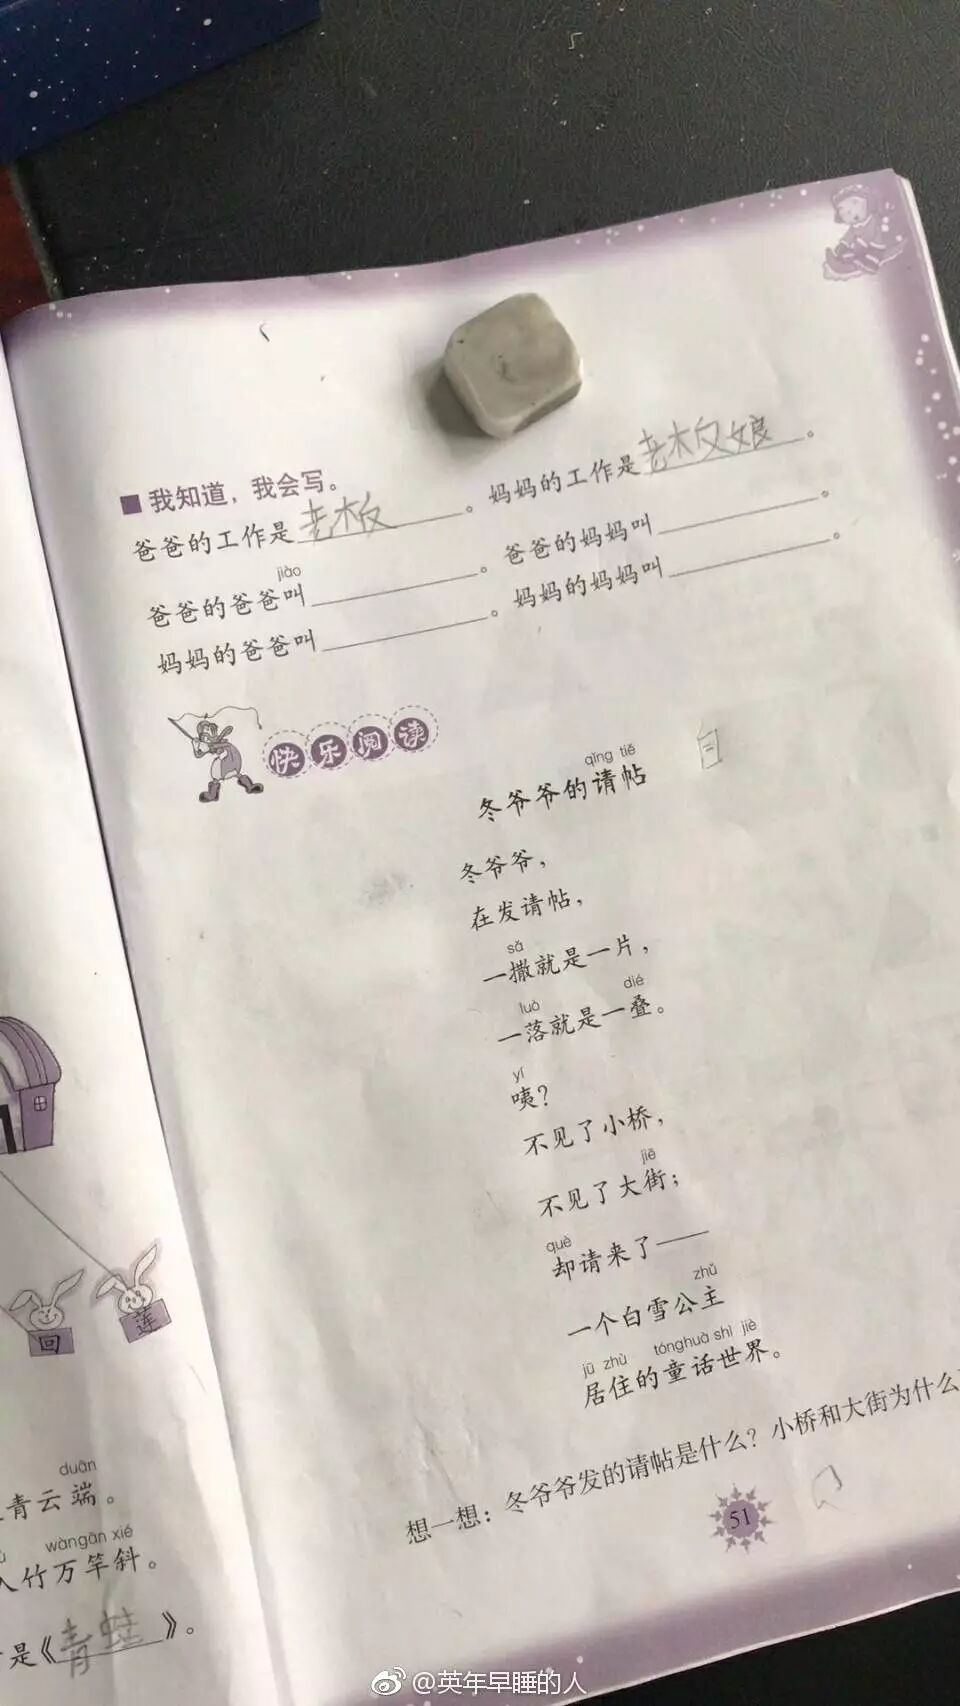 ■我知道，我会写。
爸爸的工作是老板。妈妈的工作是老板娘。
jiào
爸爸的爸爸叫______。爸爸的妈妈叫______。
妈妈的爸爸叫______。妈妈的妈妈叫______。
快乐阅读
qǐng tiě
冬爷爷的请帖
冬爷爷，
在发请帖，
sǎ
一撒就是一片，
luò dié
一落就是一叠。
yí
咦？
不见了小桥，
jiē
不见了大街；
què
却请来了——
zhǔ
一个白雪公主
jū zhù tónghuà shì jiè
居住的童话世界。
想一想：冬爷爷发的请帖是什么？小桥和大街为什么
51
回
莲
duān
青云端。
wàngān xié
入竹万竿斜。
是《青蛙》。
@英年早睡的人